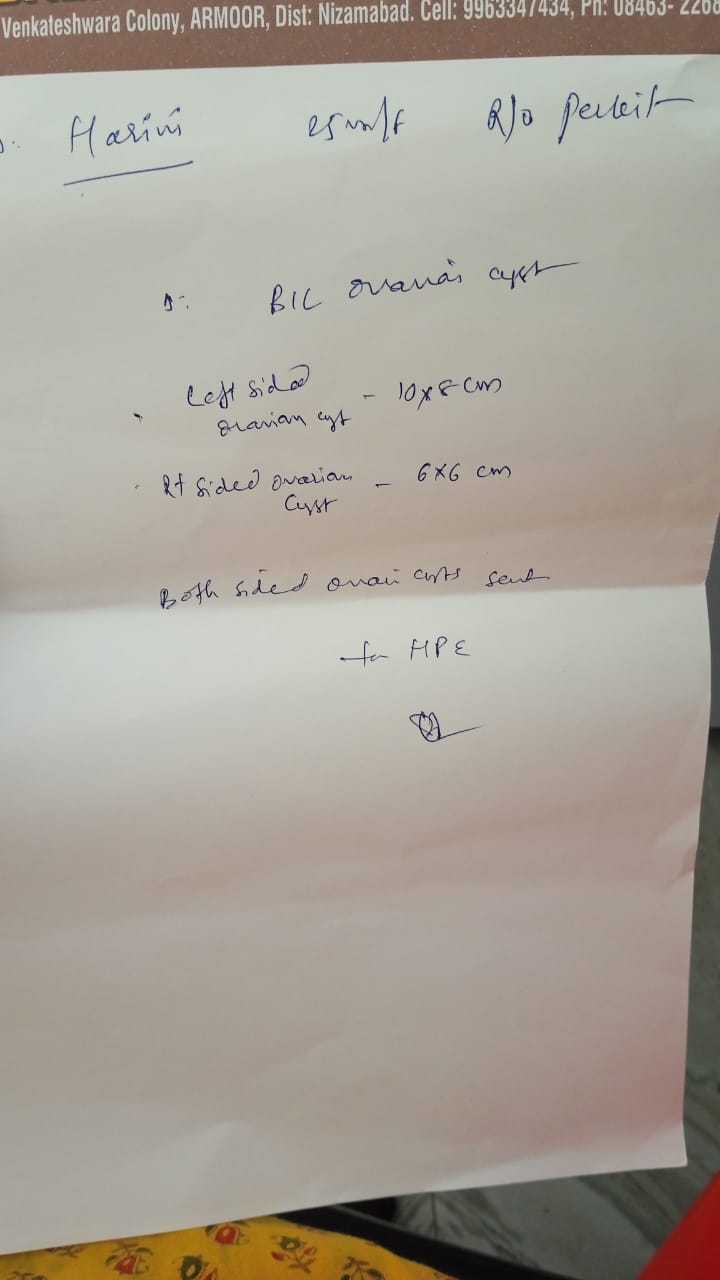 Venkateshwara Colony, ARMOOR, Dist: Nizamabad. Cell: 9963347434, Ph: 08463- 2268
Harini 25 R/o Perkit
B/L ovarian cyst
Left sided ovarian cyst - 10x8 cm
Rt sided ovarian cyst - 6x6 cm
Both sided ovari cysts sent
for HPE